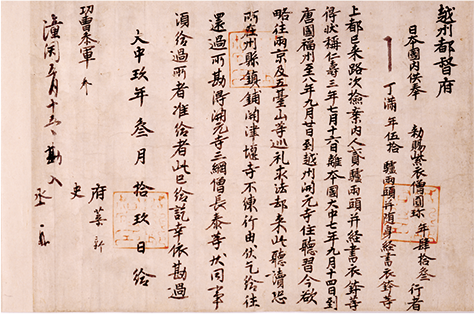 越州都督府
日本國内供奉 勅賜紫衣僧圓珎 年肆拾叁 行者
丁滿年伍拾 驢兩頭并隨身經書衣鉢等
上都已來路次檢案内人貳驢兩頭并經書衣鉢等
得狀稱仁壽三年七月十六日離本國大中七年九月十四日到
唐國福州至八年九月廿日到越州開元寺住聽習今欲
略往兩京及五臺山等巡礼求法却來此聽讀恐
所在州縣鎮鋪關津堰寺不練行由伏乞給往
還過所勘得開元寺三綱僧長泰等狀同事
須給過所者准給者此已給訖幸依勘過
大中玖年叁月拾玖日給
府葉新
功曹參軍
史
潼關五月十五日勘入 丞